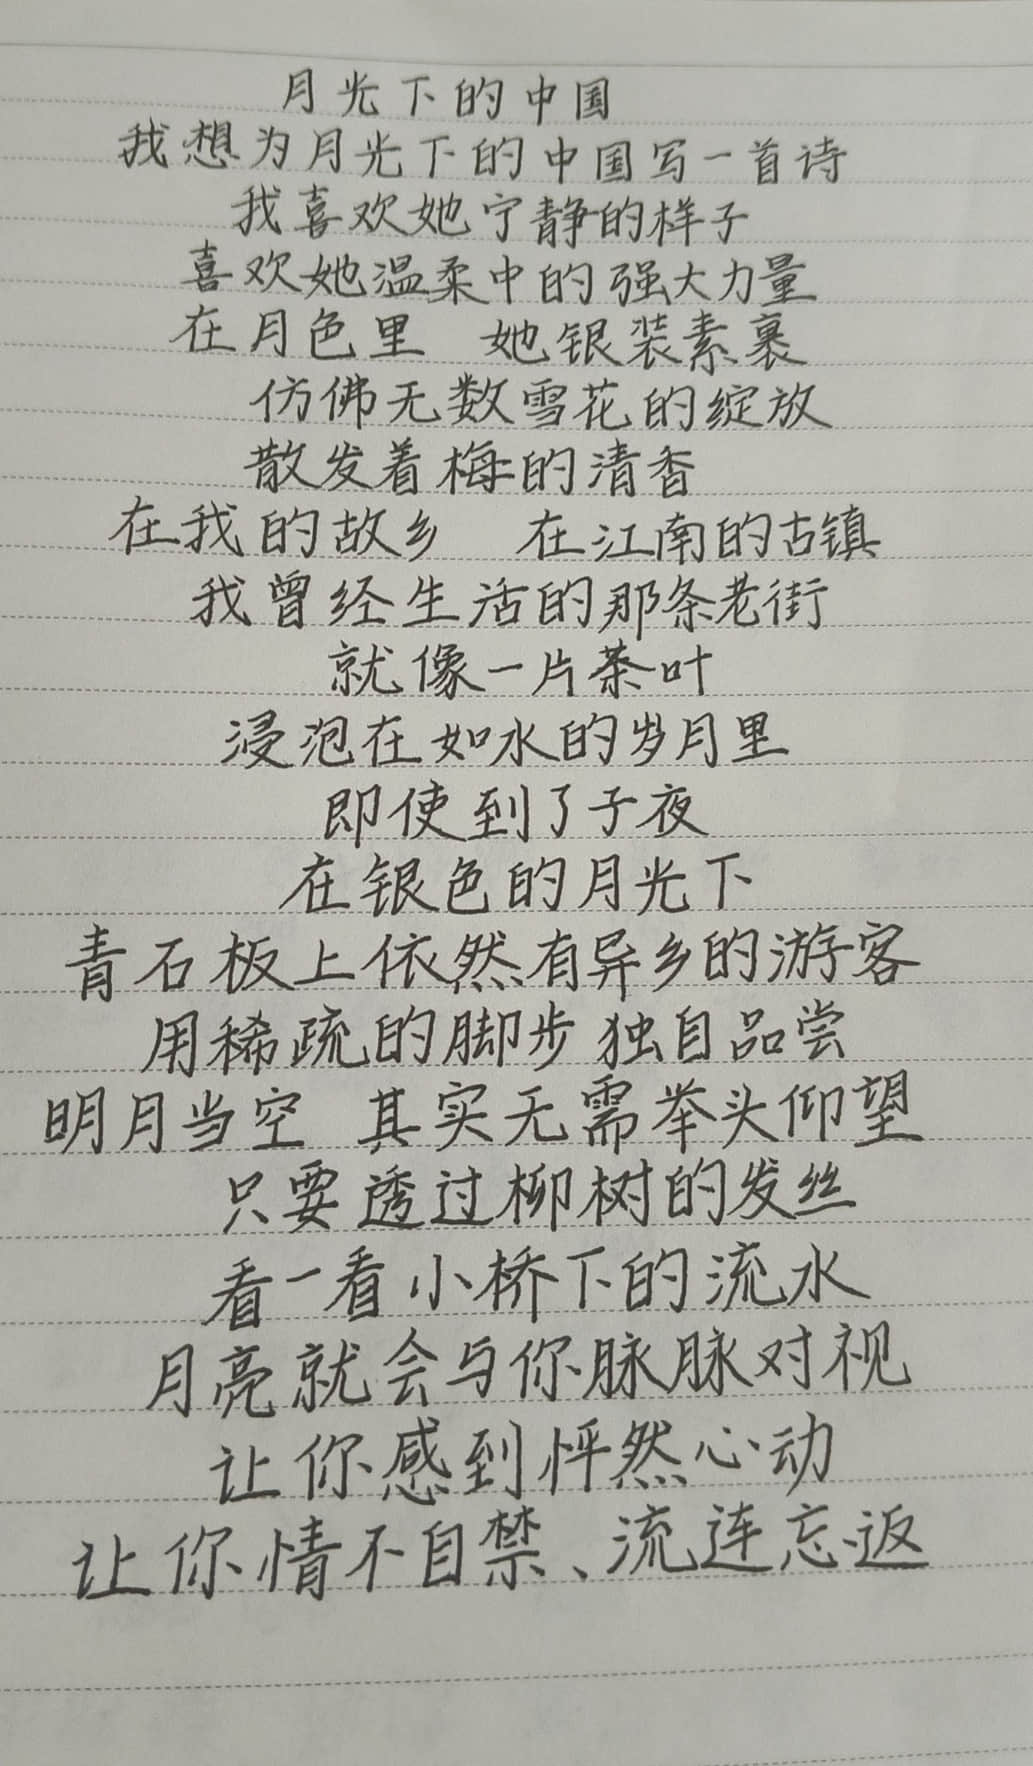 月光下的中国
我想为月光下的中国写一首诗
我喜欢她宁静的样子
喜欢她温柔中的强大力量
在月色里 她银装素裹
仿佛无数雪花的绽放
散发着梅的清香
在我的故乡 在江南的古镇
我曾经生活的那条老街
就像一片茶叶
浸泡在如水的岁月里
即使到了子夜
在银色的月光下
青石板上依然有异乡的游客
用稀疏的脚步 独自品尝
明月当空 其实无需举头仰望
只要透过柳树的发丝
看一看小桥下的流水
月亮就会与你脉脉对视
让你感到怦然心动
让你情不自禁、流连忘返